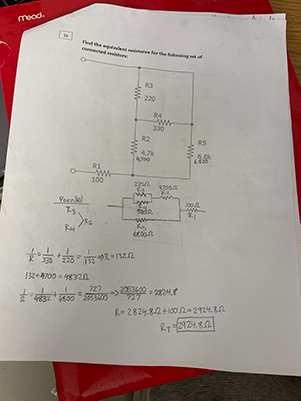 Mead
Find the equivalent resistance for the following set of
connected resistors:
R3
220
R4
330
R2
4.7k
4,700
R5
6.8k
6,800
R1
100
Parallel
R3
R4 > R2
220Ω
R3
4700Ω
R2
R4
330Ω
100Ω
R1
R5
6800Ω
1/R = 1/330 + 1/220 = 1/132 ⇒ R = 132Ω
132 + 4700 = 4832Ω
1/R = 1/4832 + 1/6800 = 727/2053600 ⇒ 2053600/727 = 2824.8
R = 2824.8Ω + 100Ω = 2924.8Ω
RT = 2924.8Ω